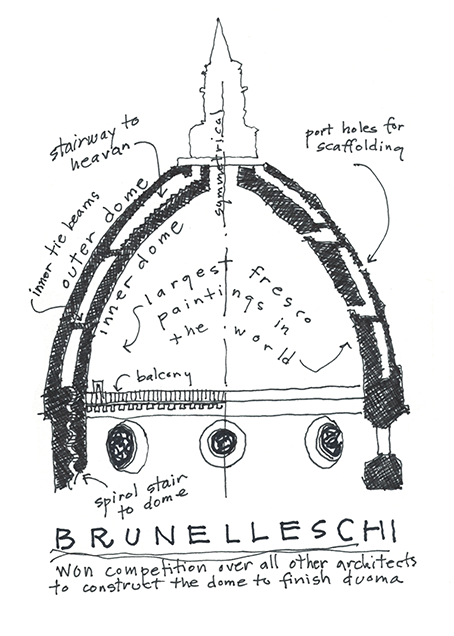 symmetrical
stairway to
heavan
port holes for
scaffolding
inner tie beams
outer dome
inner dome
largest fresco
paintings in
the world
balcony
spiral stair
to dome
BRUNELLESCHI
Won competition over all other architects
to construct the dome to finish duoma